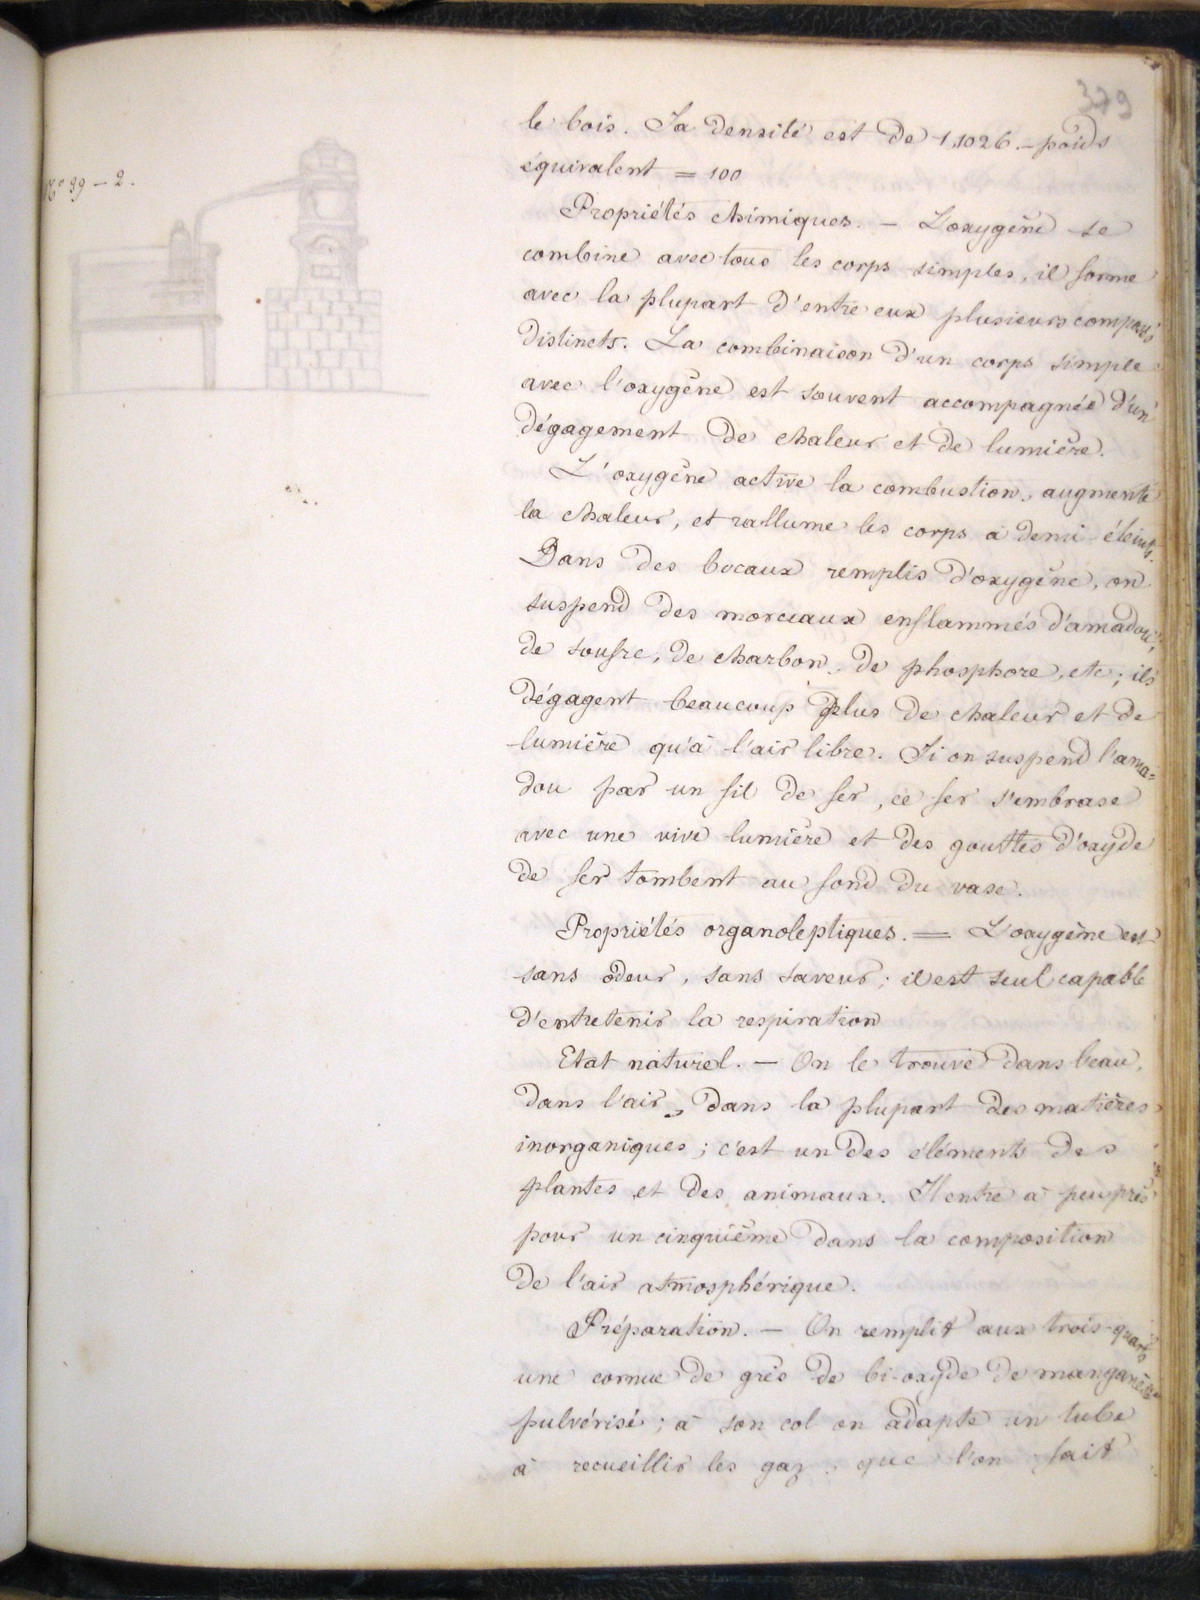 379
le bois. Sa densité est de 1,1026. – poids
équivalent = 100
N° 99 – 2.
Propriétés chimiques. – L'oxygène se
combine avec tous les corps simples, il forme
avec la plupart d'entre eux plusieurs composés
distincts. La combinaison d'un corps simple
avec l'oxygène est souvent accompagnée d'un
dégagement de chaleur et de lumière.
L'oxygène active la combustion, augmente
la chaleur, et rallume les corps à demi-éteints.
Dans des bocaux remplis d'oxygène, on
suspend des morceaux enflammés d'amadou,
de soufre, de charbon, de phosphore, etc; ils
dégagent beaucoup plus de chaleur et de
lumière qu'à l'air libre. Si on suspend l'ama-
dou par un fil de fer, ce fer s'embrase
avec une vive lumière et des gouttes d'oxyde
de fer tombent au fond du vase.
Propriétés organoleptiques. = L'oxygène est
sans odeur, sans saveur; il est seul capable
d'entretenir la respiration
Etat naturel. – On le trouve dans l'eau,
dans l'air, dans la plupart des matières
inorganiques; c'est un des éléments des
plantes et des animaux. Il entre à peu près
pour un cinquième dans la composition
de l'air atmosphérique.
Préparation. – On remplit aux trois-quarts
une cornue de grès de bi-oxyde de manganèse
pulvérisé; à son col on adapte un tube
à recueillir les gaz, que l'on fait